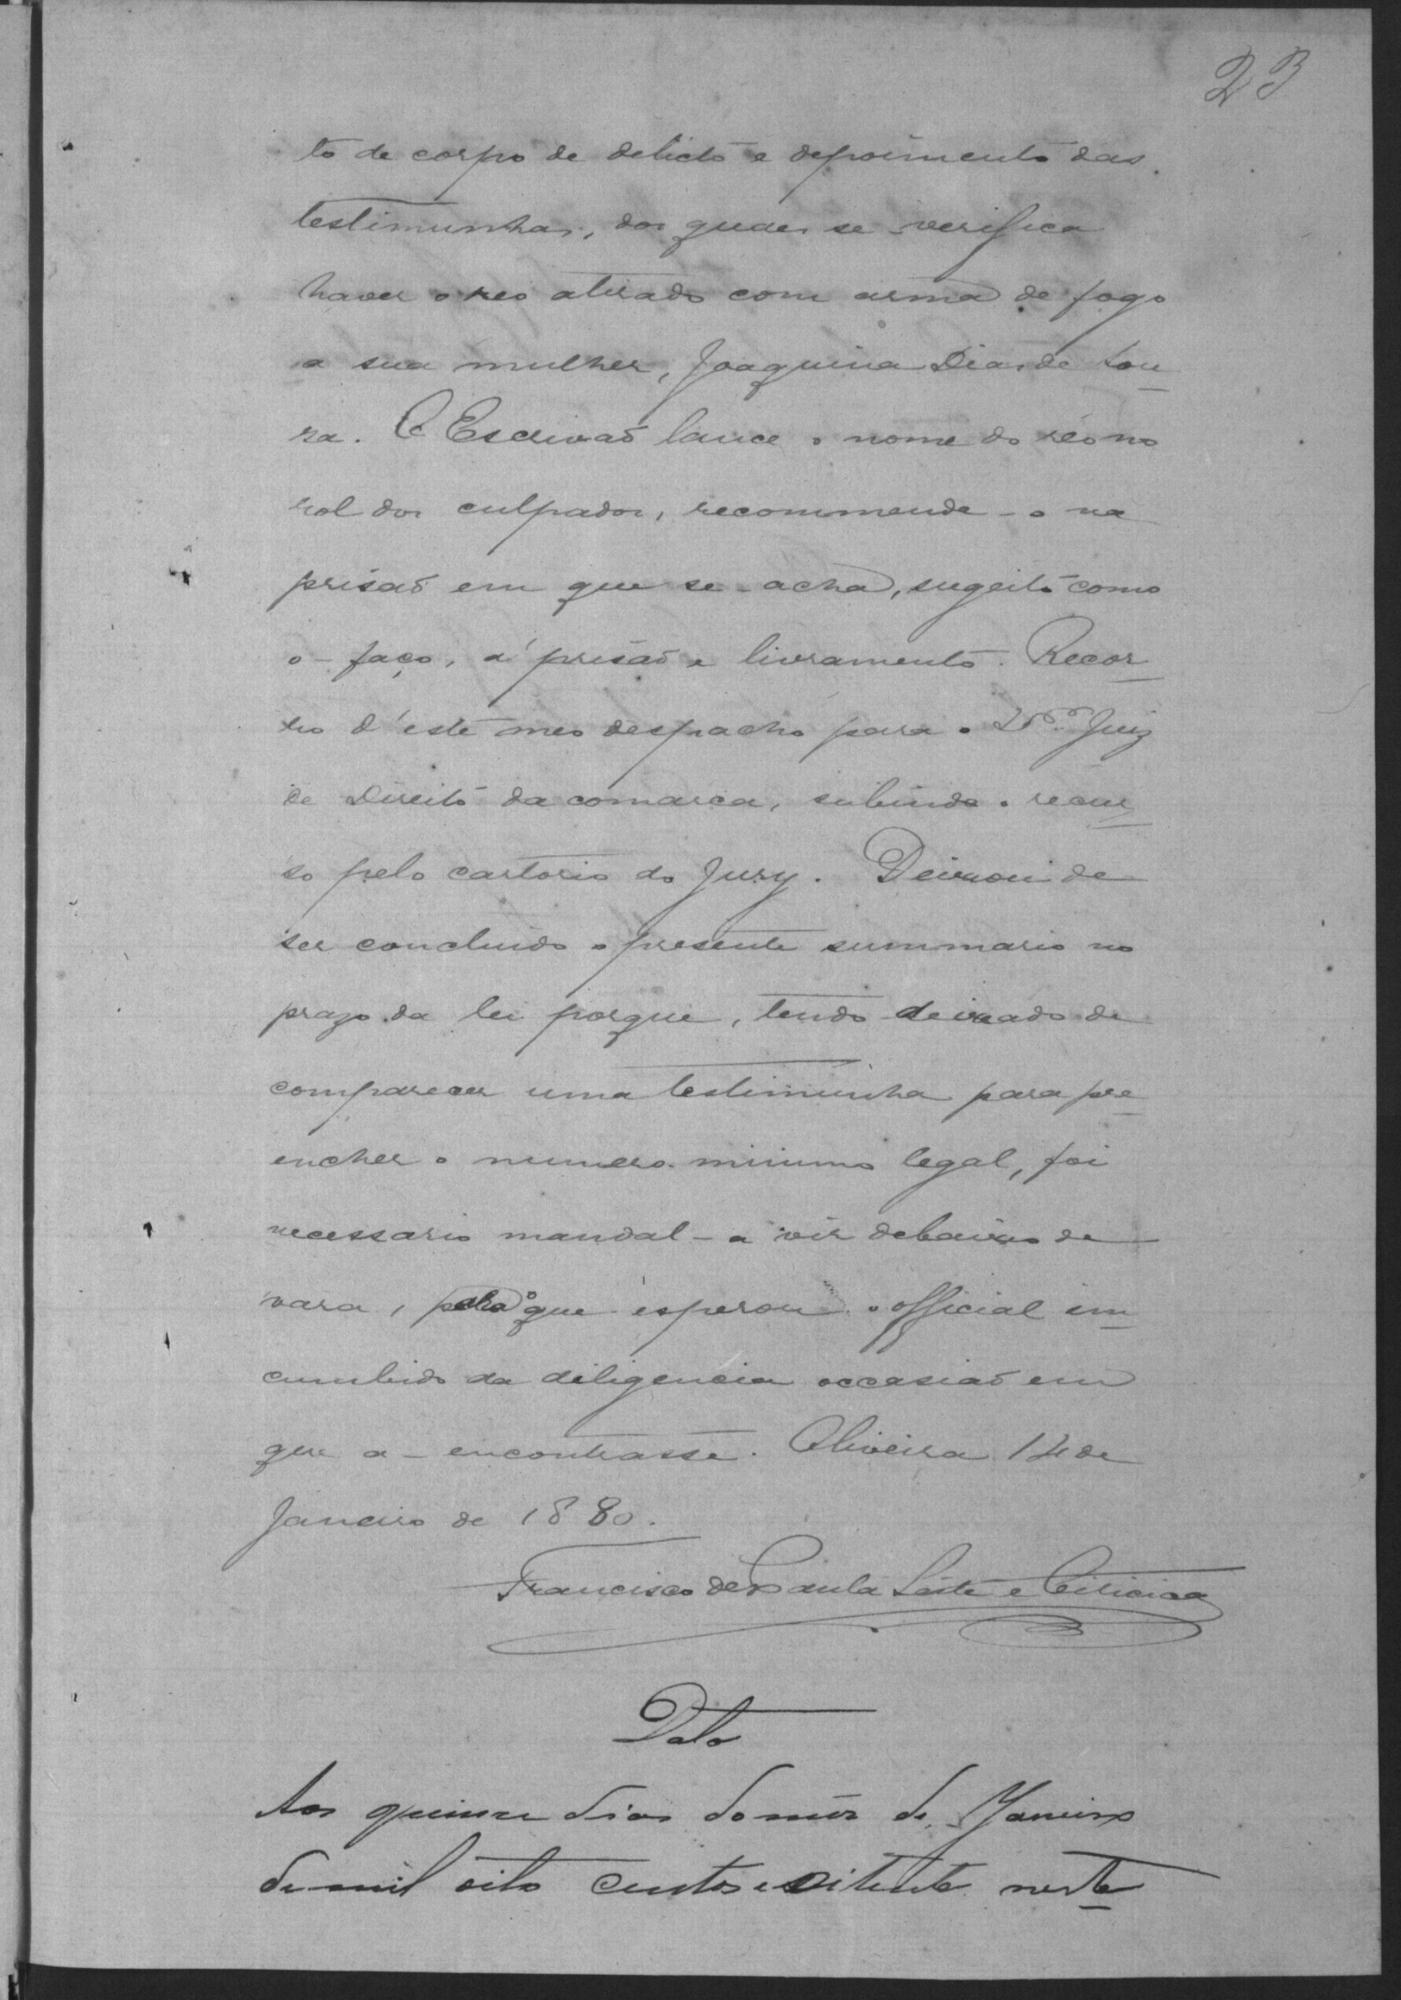 23
to de corpo de delicto e depoimento das
testimunhas, dos quaes se verifica
haver o reo atirado com arma de fogo
a sua mulher, Joaquina Dias de Sou
za. O Escrivaõ lance o nome do réo no
rol dos culpados, recommende-o na
prisaõ em que se-acha, sugeito como
o-faço, á prisaõ e livramento. Recor
ro d'este meo despacho para o Juiz
de Direito da comarca, subindo o recur
so pelo cartorio do Jury. Deixou de
ser concluido o presente summario no
prazo da lei porque, tendo deixado de
comparecer uma testimunha para pre
encher o numero minimo legal, foi
necessario mandal-a vir debaixo de
vara, pelo que esperou o official in
cumbido da diligencia occasiaõ em
que a-encontrasse. Oliveira 14 de
Janeiro de 1880.
Francisco de Paula Leite e
Data
Aos quinze dias do mez de Janeiro
de mil oito centos e oitenta neste